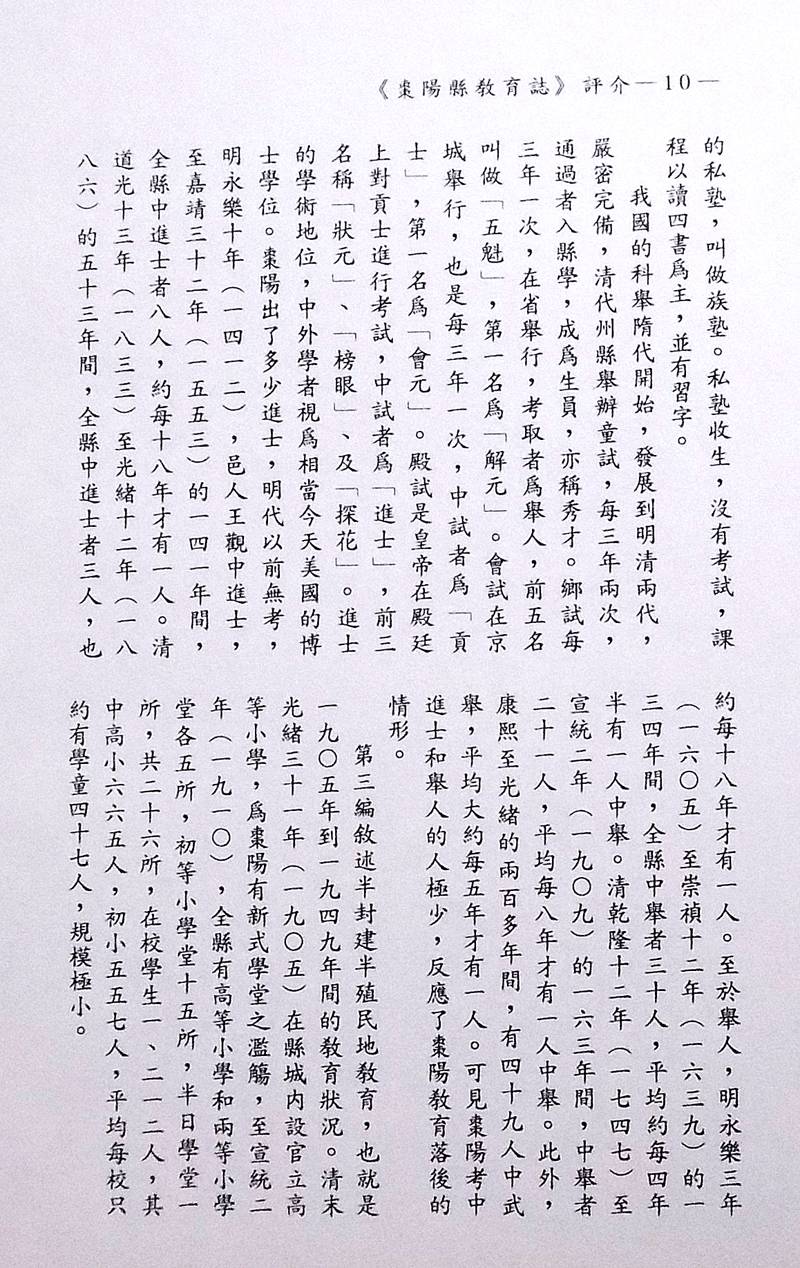 《棗陽縣教育誌》評介—10—
的私塾，叫做族塾。私塾收生，沒有考試，課
程以讀四書爲主，並有習字。
我國的科舉隋代開始，發展到明清兩代，
嚴密完備，清代州縣舉辦童試，每三年兩次，
通過者入縣學，成爲生員，亦稱秀才。鄉試每
三年一次，在省舉行，考取者爲舉人，前五名
叫做「五魁」，第一名爲「解元」。會試在京
城舉行，也是每三年一次，中試者爲「貢
士」，第一名爲「會元」。殿試是皇帝在殿廷
上對貢士進行考試，中試者爲「進士」，前三
名稱「狀元」、「榜眼」、及「探花」。進士
的學術地位，中外學者視爲相當今天美國的博
士學位。棗陽出了多少進士，明代以前無考，
明永樂十年（一四一二），邑人王觀中進士，
至嘉靖三十二年（一五五三）的一四一年間，
全縣中進士者八人，約每十八年才有一人。清
道光十三年（一八三三）至光緒十二年（一八
八六）的五十三年間，全縣中進士者三人，也
約每十八年才有一人。至於舉人，明永樂三年
（一六〇五）至崇禎十二年（一六三九）的一
三四年間，全縣中舉者三十人，平均約每四年
半有一人中舉。清乾隆十二年（一七四七）至
宣統二年（一九〇九）的一六三年間，中舉者
二十一人，平均每八年才有一人中舉。此外，
康熙至光緒的兩百多年間，有四十九人中武
舉，平均大約每五年才有一人。可見棗陽考中
進士和舉人的人極少，反應了棗陽教育落後的
情形。
第三編敘述半封建半殖民地教育，也就是
一九〇五年到一九四九年間的教育狀況。清末
光緒三十一年（一九〇五）在縣城內設官立高
等小學，爲棗陽有新式學堂之濫觴，至宣統二
年（一九一〇），全縣有高等小學和兩等小學
堂各五所，初等小學堂十五所，半日學堂一
所，共二十六所，在校學生一、二一二人，其
中高小六六五人，初小五五七人，平均每校只
約有學童四十七人，規模極小。